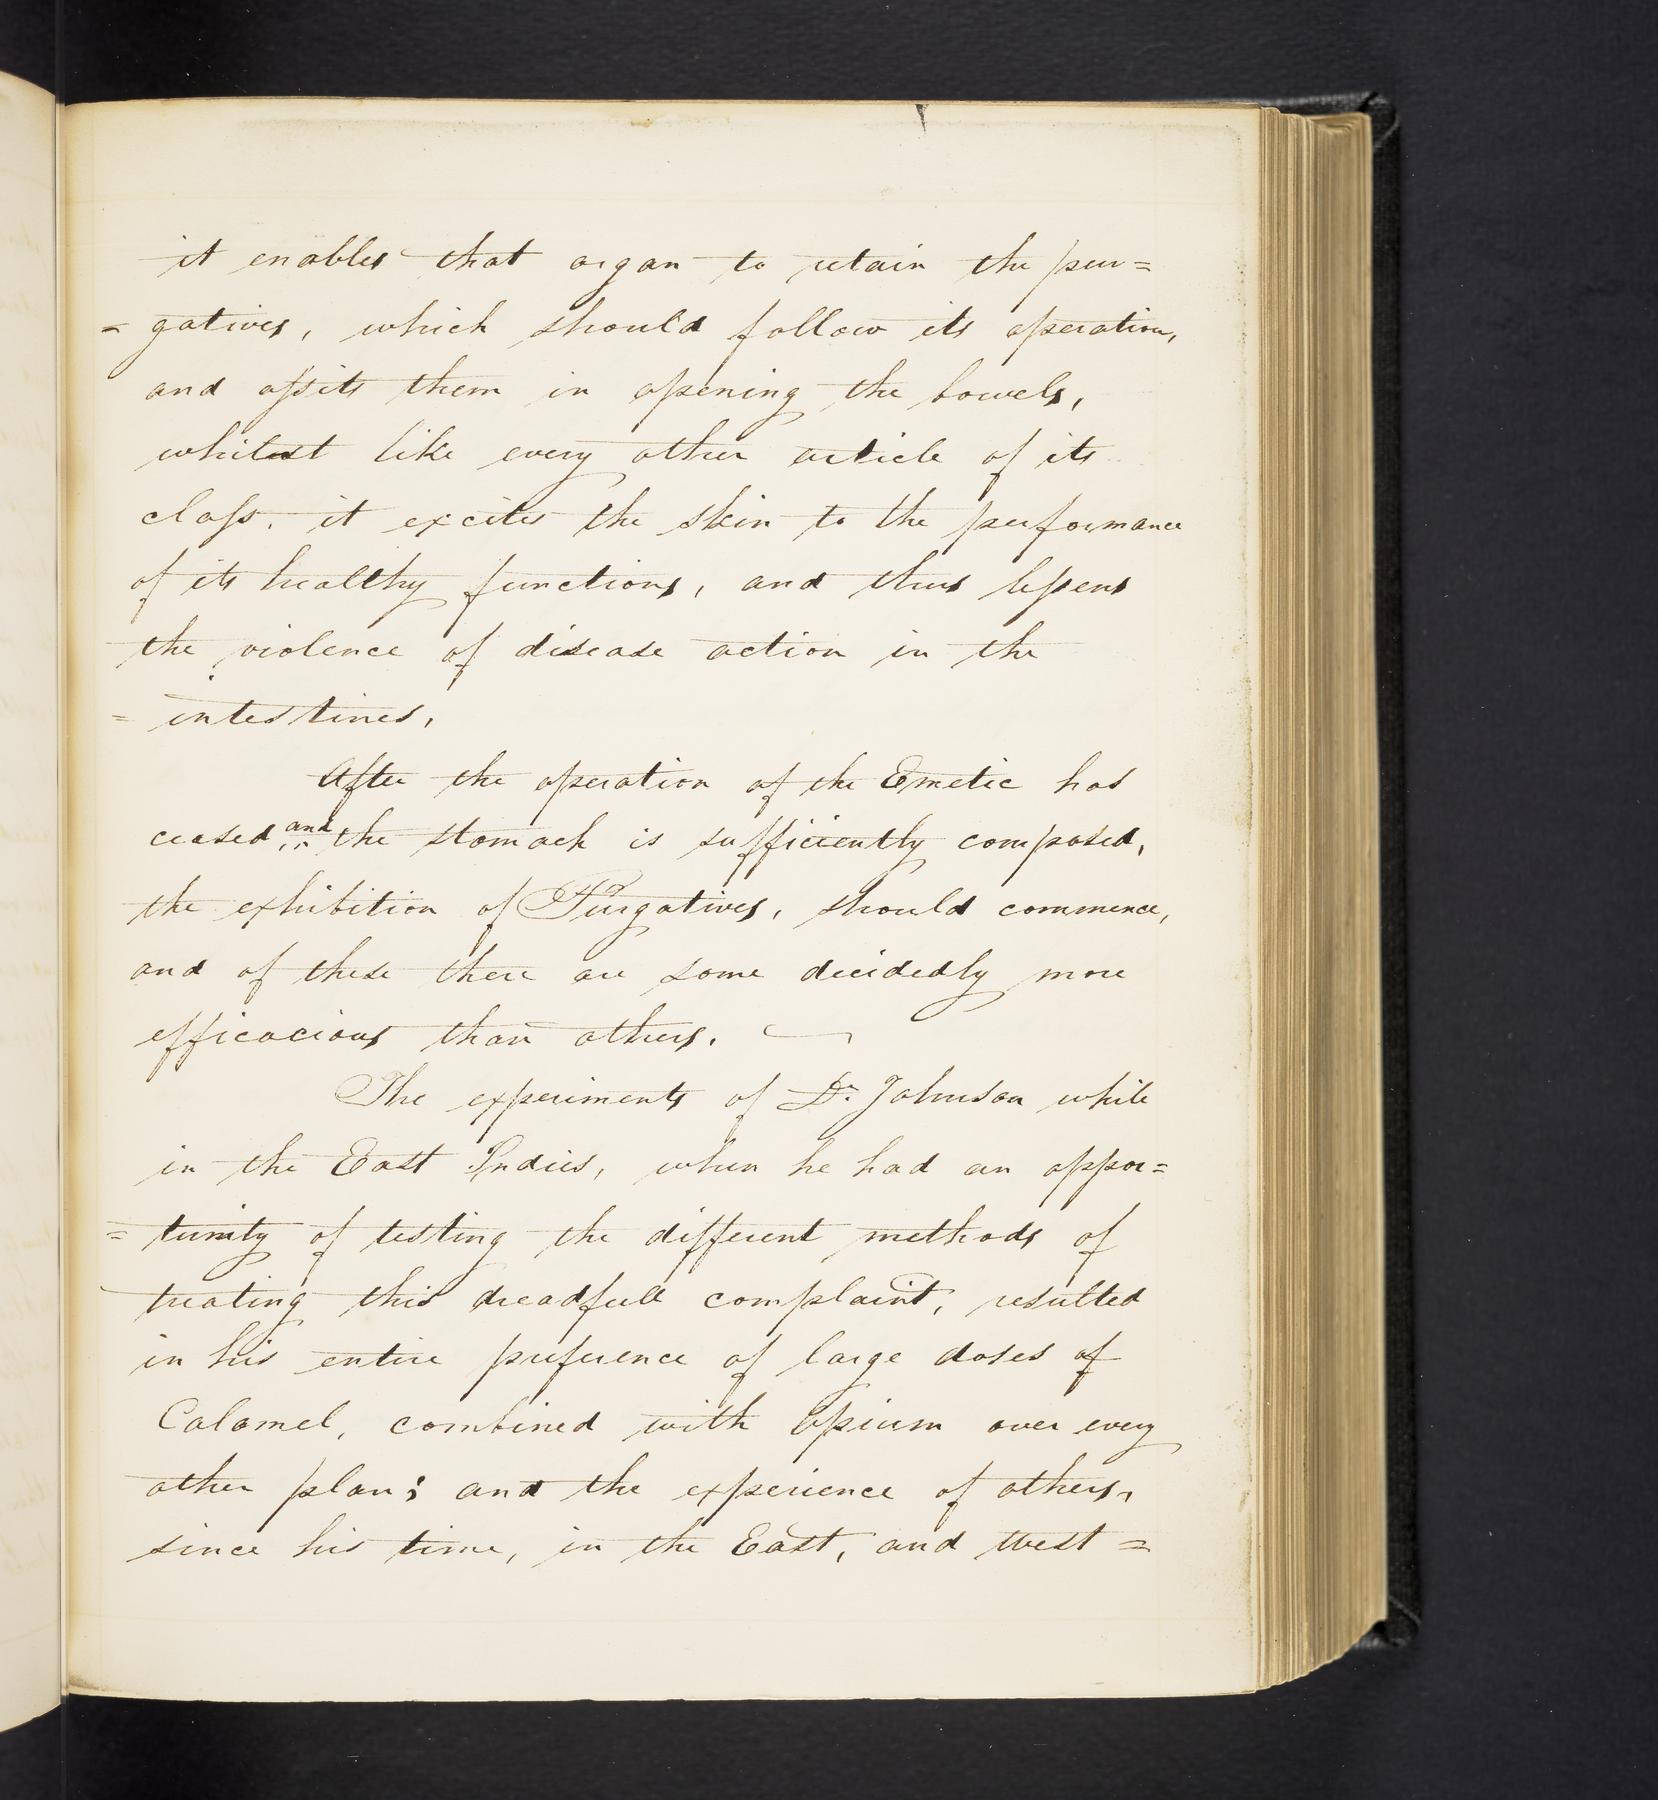 it enables that organ to retain the pur=
= gatives, which should follow its operation,
and assits them in opening the bowels,
whitest like every other article of its
class, it excites the skin to the performance
of its healthy functions, and thus lessens
the violence of disease action in the
= intestines.
After the operation of the Emetic has
ceased, and the stomach is sufficiently composed,
the exhibition of Purgatives, should commence,
and of these there are some decidedly more
efficacious than others.
The experiments of Dr. Johnson while
in the East Indies, when he had an oppor=
= tunity of testing the different methods of
treating this dreadfull complaint, resulted
in his entire preference of large doses of
Calomel, combined with Opium over every
other plan; and the experience of others,
since his time, in the East, and West =